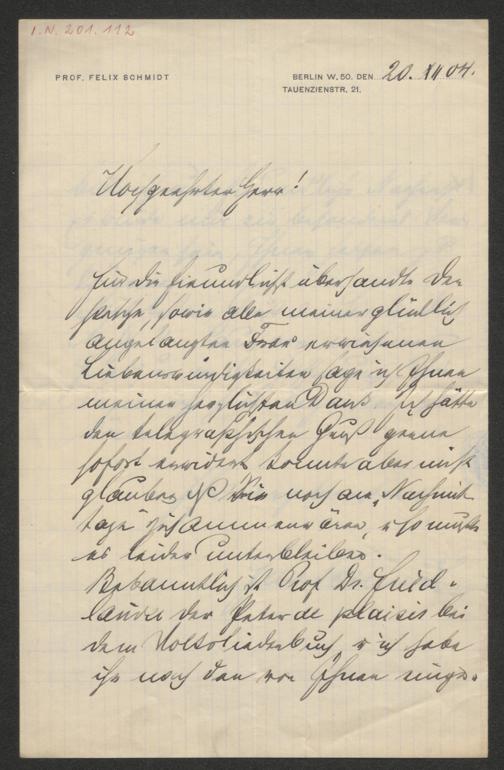 I.N. 201.112
PROF. FELIX SCHMIDT
BERLIN W. 50. DEN 20. XII 04.
TAUENZIENSTR. 21.
Hochgeehrter Herr!
Für die freundlichst übersandte De-
pesche, sowie alle meiner glücklich
angelangten Frau erwiesenen
Liebenswürdigkeiten sage ich Ihnen
meinen herzlichsten Dank. Ich hätte
den telegraphischen Gruß gerne
sofort erwidert konnte aber nicht
glauben, daß Sie noch am „Nachmit-
tage" zusammen wären, u. so mußte
es leider unterbleiben.
Bekanntlich ist Prof Dr. Fried-
länder der Peter de plaisir bei
dem Volksliederbuch, u. ich habe
ihm noch den von Ihnen einge-